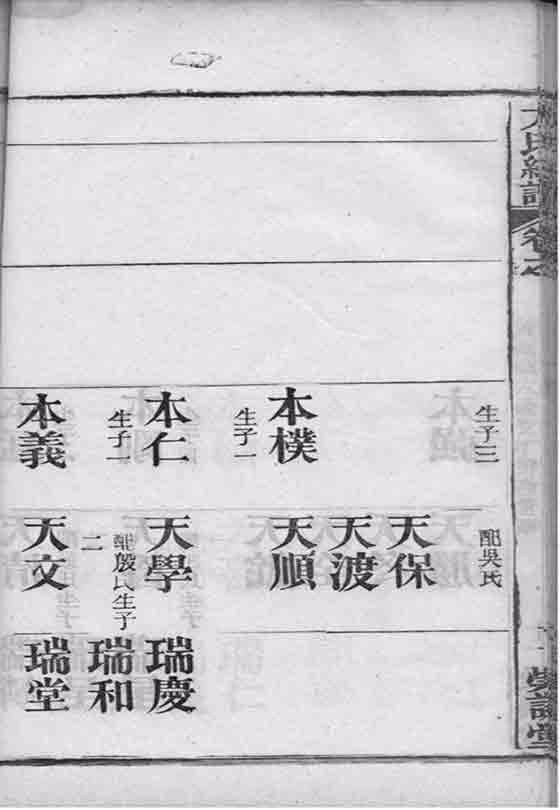 生子三
本樸
生子一
本仁
生子一
本義
配吳氏
天保
天渡
天順
天學
配殷氏生子
二
天文
瑞慶
瑞和
瑞堂